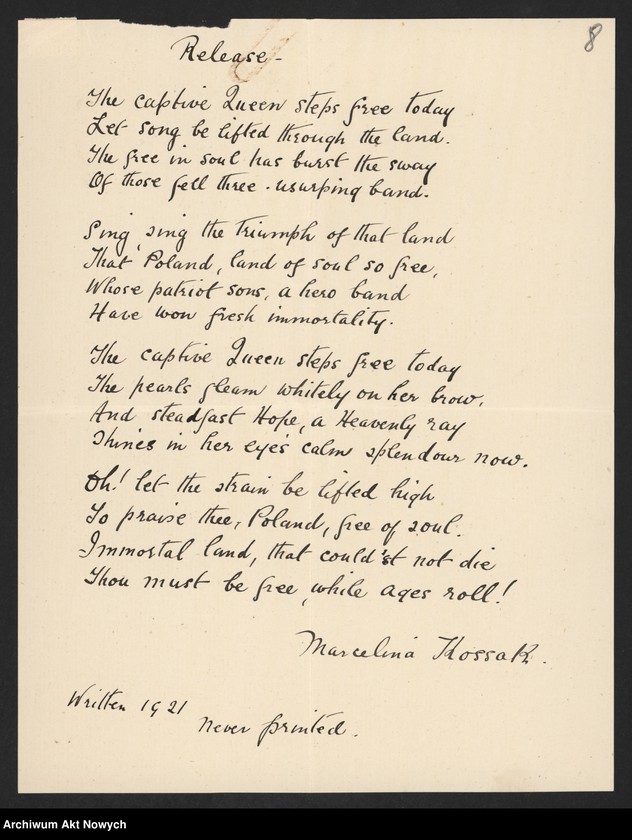 8
Release -
The captive Queen steps free today
Let song be lifted through the land.
The free in soul has burst the sway
Of those fell three - usurping band.
Sing, sing the triumph of that land
That Poland, land of soul so free,
Whose patriot sons, a hero band
Have won fresh immortality.
The captive Queen steps free today
The pearls gleam whitely on her brow,
And steadfast Hope, a Heavenly ray
Shines in her eye's calm splendour now.
Oh! let the strain be lifted high
To praise thee, Poland, free of soul.
Immortal land, that could'st not die
Thou must be free, while ages roll!
Marcelina Kossak.
Written 1921
Never printed.
Archiwum Akt Nowych